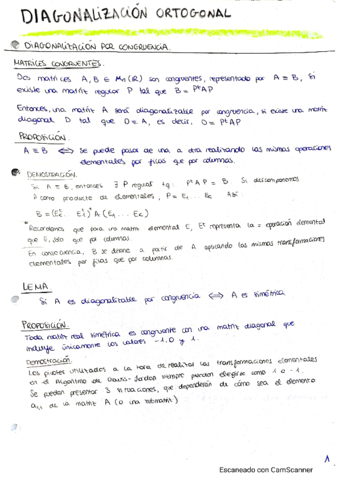 DIAGONALIZACIÓN ORTOGONAL
DIAGONALIZACIÓN POR CONGRUENCIA.
MATRICES CONGRUENTES.
Dos matrices A, B ∈ Mn(R) son congruentes, representado por A ≡ B, si
existe una matriz regular P tal que B = PᵗAP
Entonces, una matriz A será diagonalizable por congruencia, si existe una matriz
diagonal D tal que D ≡ A, es decir, D = PᵗAP
PROPOSICIÓN.
A ≡ B ⟺ Se puede pasar de una a otra realizando las mismas operaciones
elementales por filas que por columnas.
DEMOSTRACIÓN.
Si A ≡ B, entonces ∃ P regular tq: PᵗAP = B Si descomponemos
P como producto de elementales, P = E₁ ... Ek
B = (Eᵗk ... Eᵗ₁) A (E₁ ... Ek)
Recordemos que para una matriz elemental E, Eᵗ representa la = operación elemental
que E, por columnas.
En consecuencia, B se obtiene a partir de A aplicando las mismas transformaciones
elementales por filas que por columnas.
LEMA
Si A es diagonalizable por congruencia ⟺ A es simétrica
PROPOSICIÓN.
Toda matriz real simétrica es congruente con una matriz diagonal que
incluye únicamente los valores -1, 0 y 1.
DEMOSTRACIÓN
Los pivotes utilizados a la hora de realizar las transformaciones elementales
en el Algoritmo de Gauss-Jordan siempre pueden elegirse como 1 o -1.
Se pueden presentar 3 situaciones, que dependerán de cómo sea el elemento
a₁,₁ de la matriz A (o una submatriz)
1
Escaneado con CamScanner